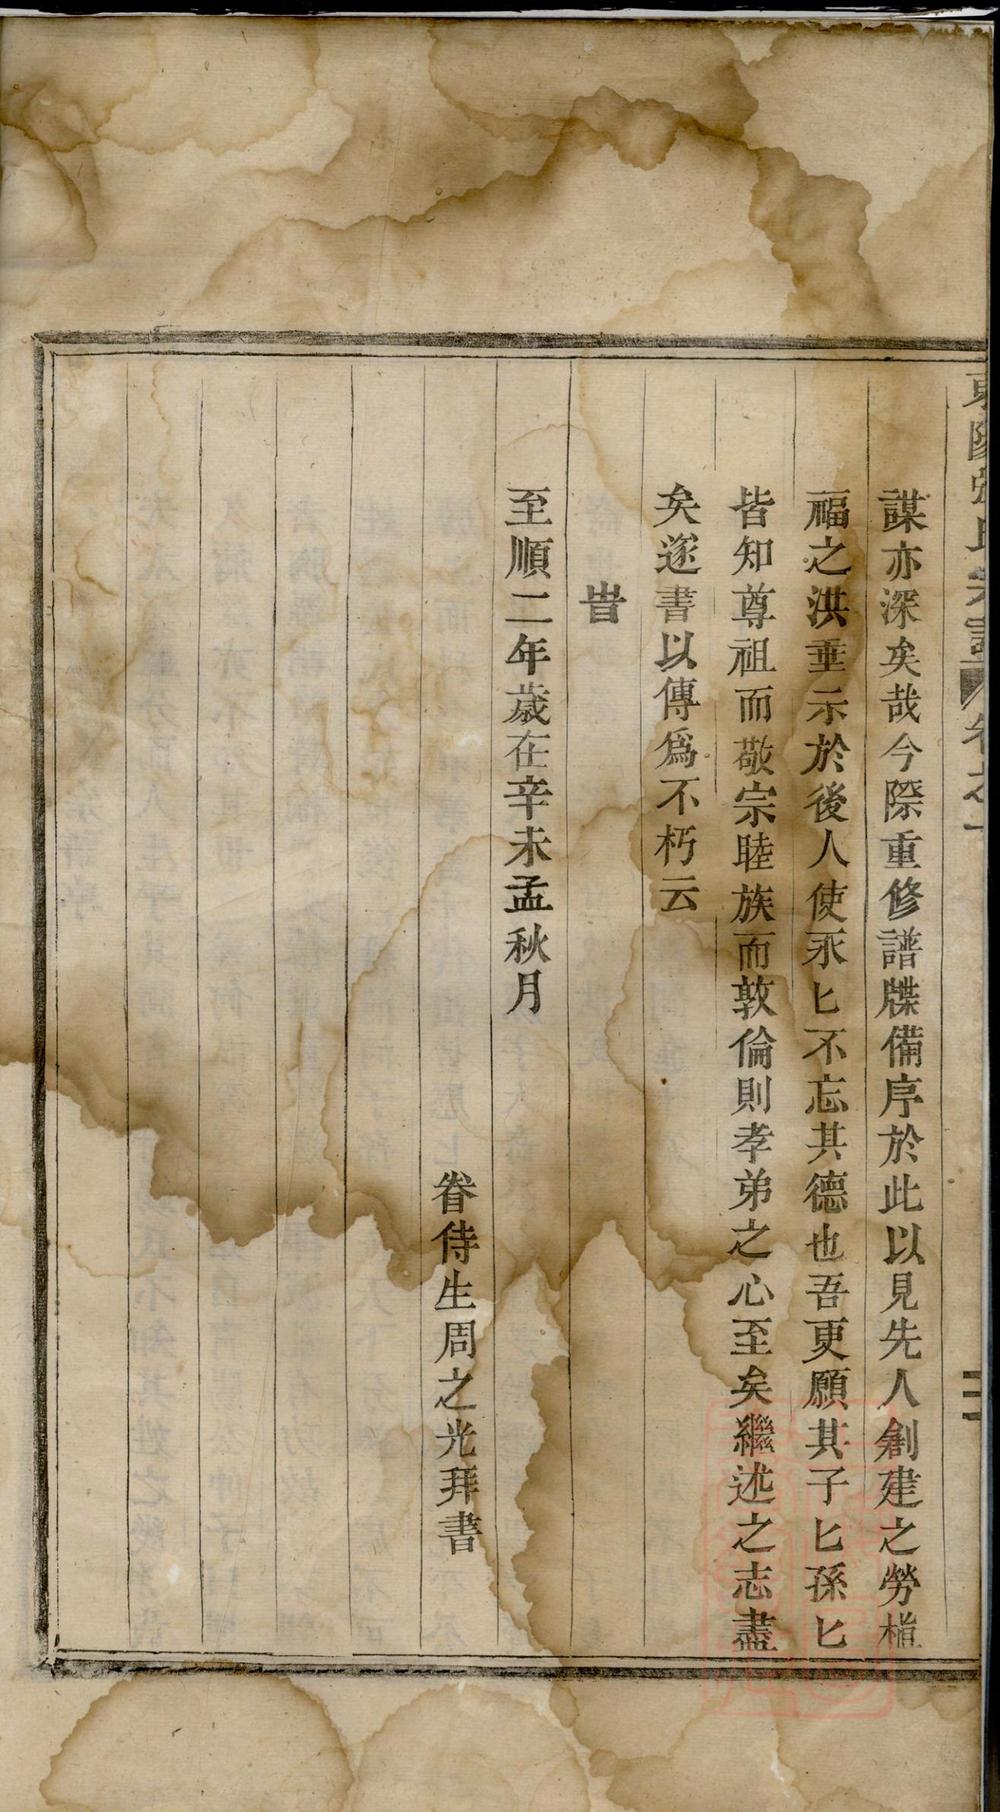 謀亦深矣哉今際重修譜牒備序於此以見先人創建之勞槙
福之洪垂示於後人使永匕不忘其德也吾更願其子匕孫匕
皆知尊祖而敬宗睦族而敦倫則孝弟之心至矣繼述之志盡
矣遂書以傳爲不朽云
旹
至順二年歲在辛未孟秋月
眷侍生周之光拜書